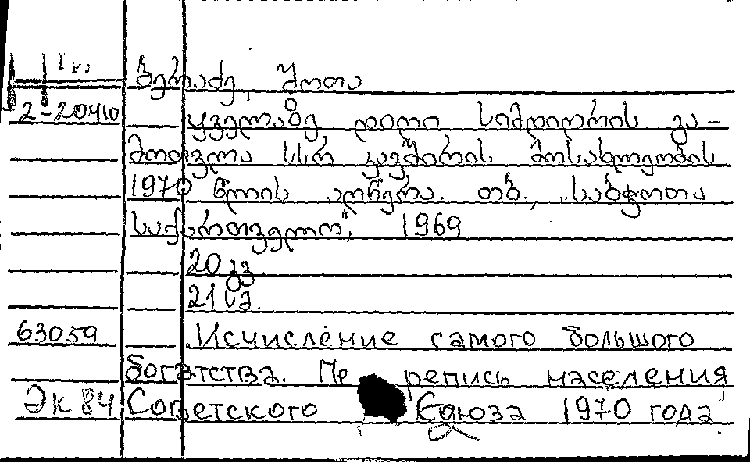 შოთა
2-20410 ყველაზე დიდი სიმდიდრის გა-
მოთვლა სსრ კავშირის მოსახლეობის
1970 წლის აღწერა. თბ., „საბჭოთა
საქართველო", 1969
20 გვ
21 სმ
63059 Исчисление самого большого
богатства. Пе репись населения
Эк 84 Советского Союза 1970 года